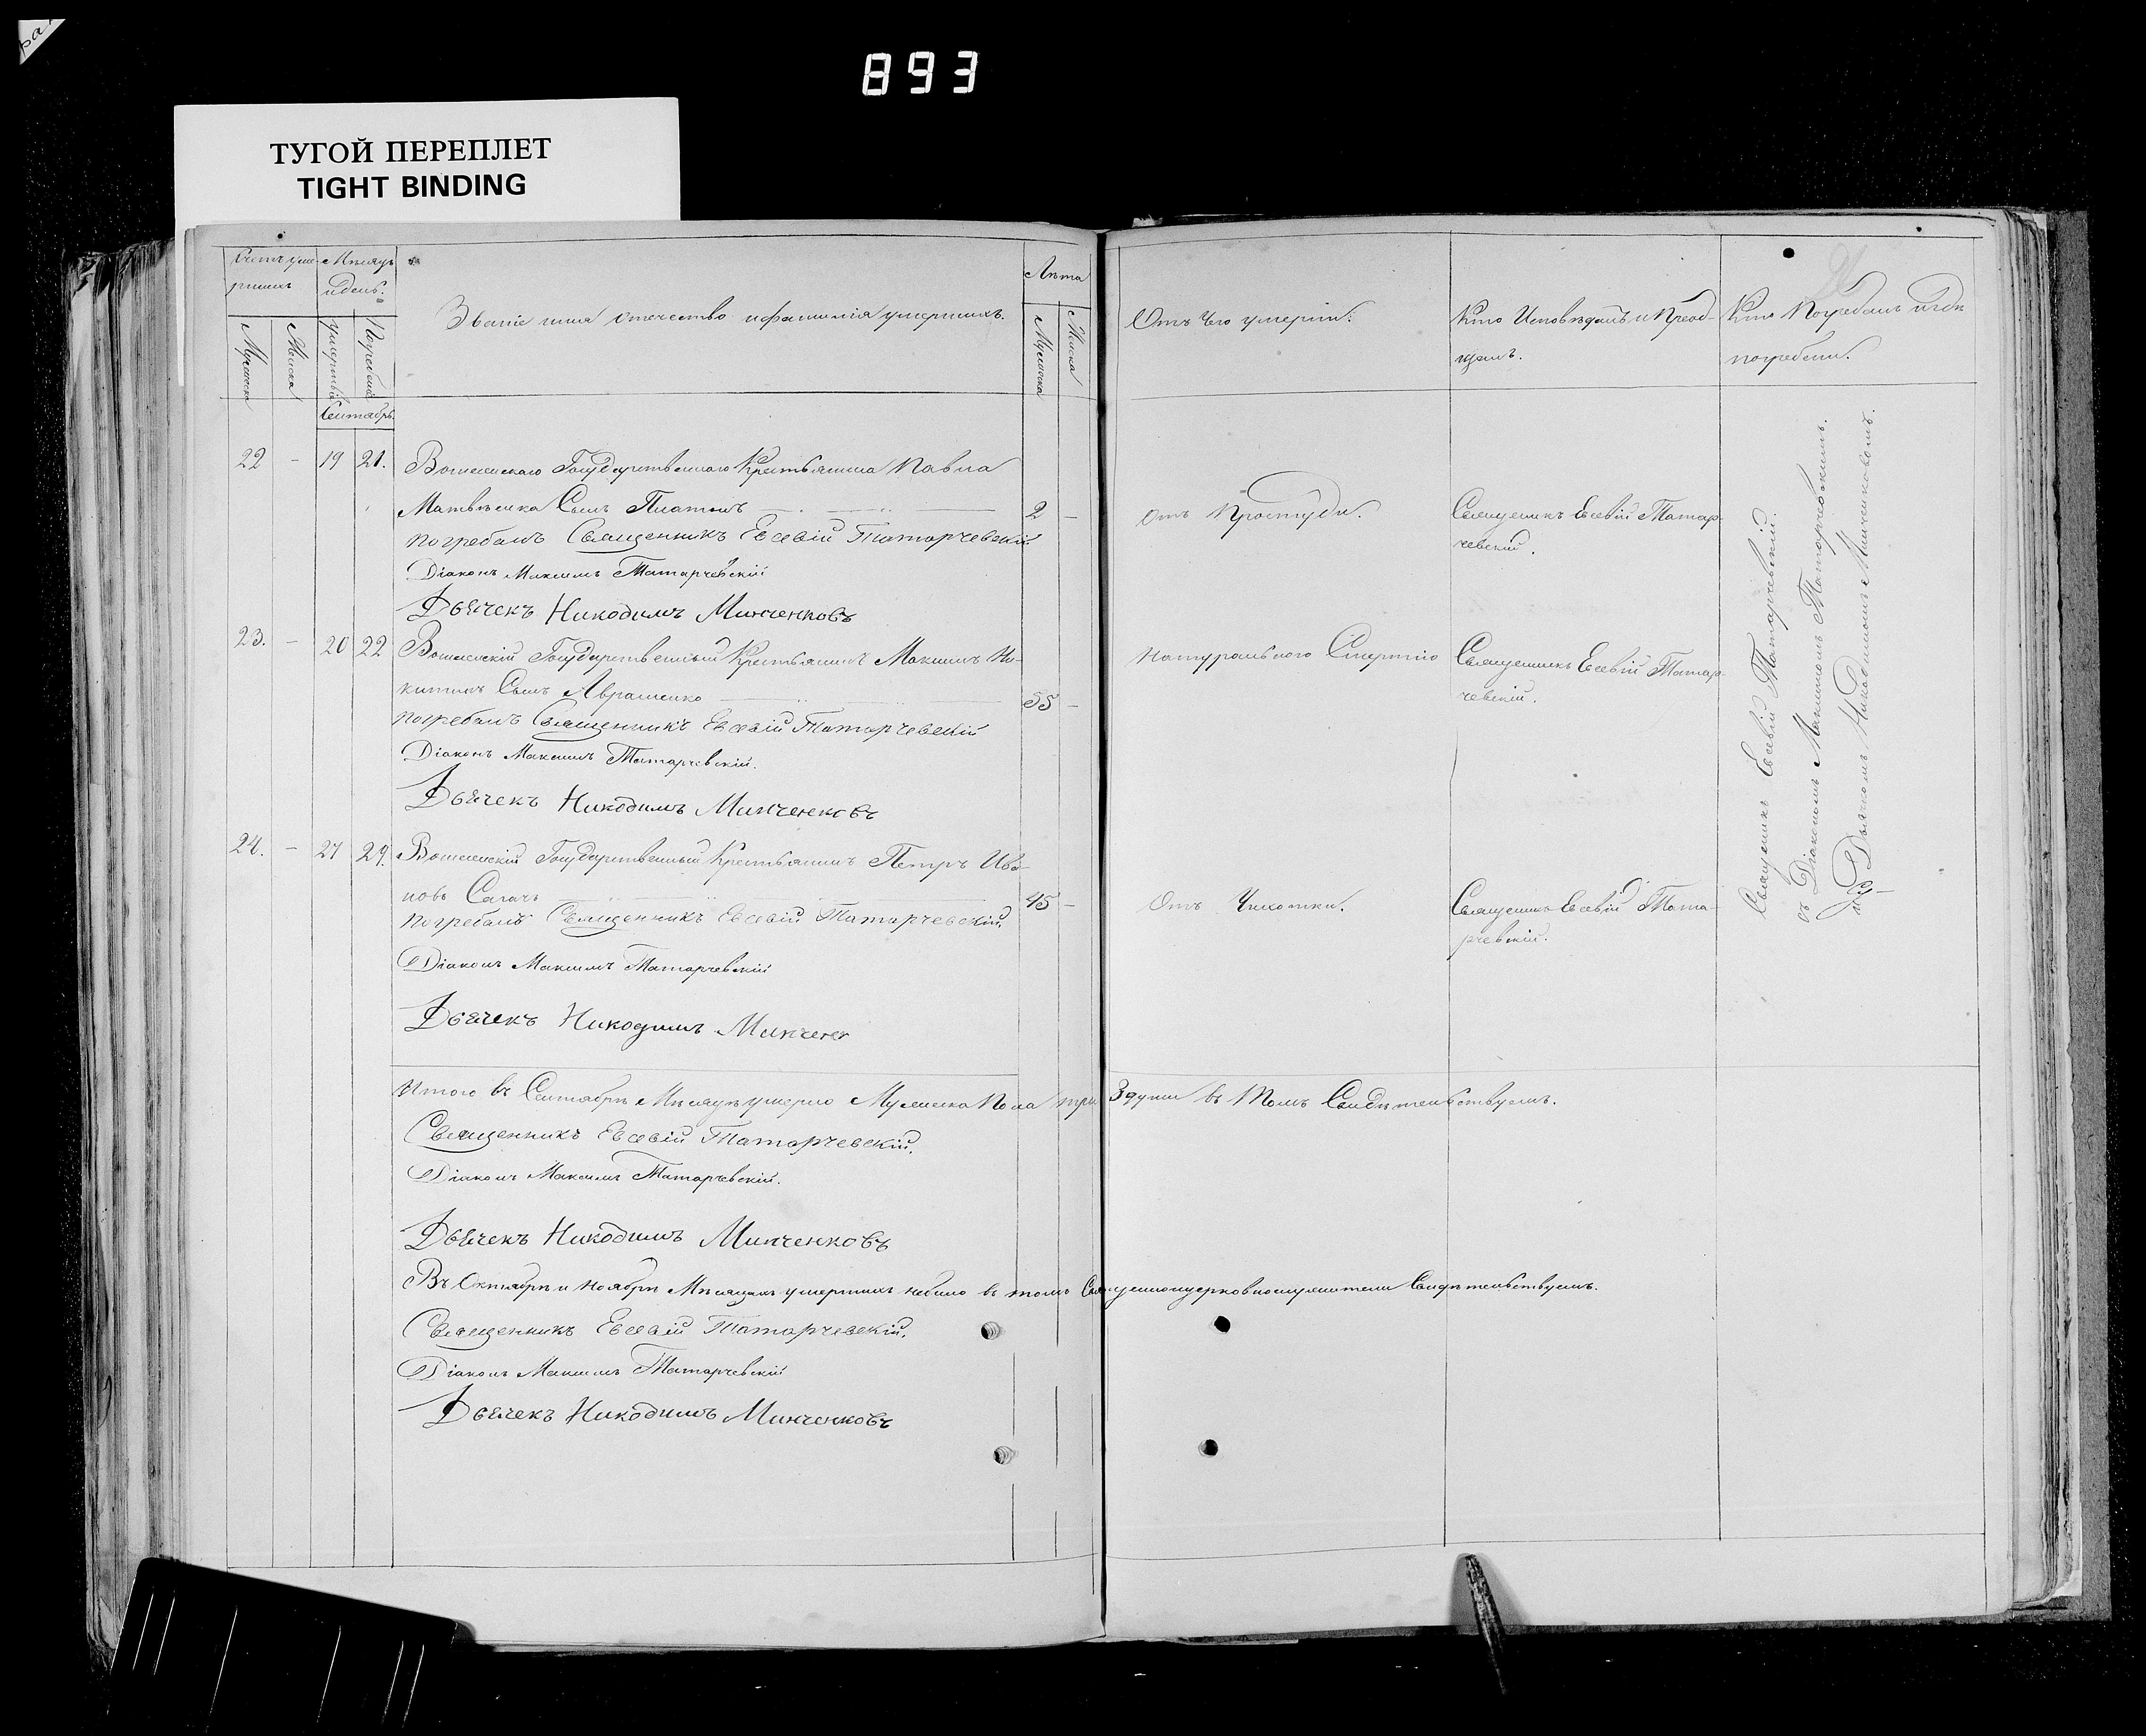 893
ТУГОЙ ПЕРЕПЛЕТ
TIGHT BINDING
Счетъ уме-
ршихъ
Мѣсяцъ
и день.
Званіе имя отечество и фамилія умершихъ.
Лѣта
Отъ Чего умерли.
Кто Исповѣдалъ и Преоб-
щалъ.
Кто Погребалъ и гдѣ
погребени.
Мужеска
Женска
Умертвія
Погребенія
Мужеска
Женска
Сентябрь.
22 – 19 21. Государственнаго Крестьянина Павла
Матвѣенка Сынъ Платонъ 2 – отъ Простуди. Священикъ Евсевій Татар-
чевскій.
погребалъ Священникъ Евсевій Татарчевскій
Діаконъ Максимъ Татарчевскій
Дьячекъ Никодимъ Минченковъ
23. – 20 22 Государственный Крестьянинъ Максимъ Ни-
китинъ Сынъ Авраменко 55 – Натуральною Смертію Священикъ Евсевій Татар-
чевскій.
погребалъ Священникъ Евсевій Татарчевскій
Діаконъ Максимъ Татарчевскій.
Дьячекъ Никодимъ Минченковъ
24. – 27 29. Государственный Крестьянинъ Петръ Ива-
новъ Сагачъ 45 – Отъ Чихотки. Священикъ Евсевій Тата-
рчевскій.
погребалъ Священникъ Евсевій Татарчевскій.
Діаконъ Максимъ Татарчевскій
Дьячекъ Никодимъ Минченк
Священикъ Евсевій Татарчевскій.
съ Діакономъ Максимомъ Татарчевскимъ.
и Дьячкомъ Никодимомъ Минченковомъ.
Итого въ Сентябрѣ Мѣсяцѣ умерло Мужеска Пола три 3 души въ томъ Свидѣтельствуемъ.
Священникъ Евсевій Татарчевскій.
Діаконъ Максимъ Татарчевскій.
Дьячекъ Никодимъ Минченковъ
Въ Октябрѣ и Ноябрѣ Мѣсяцахъ умершихъ небило въ томъ Священноцерковнослужители Свидѣтельствуемъ.
Священникъ Евсевій Татарчевскій.
Діаконъ Максимъ Татарчевскій
Дьячекъ Никодимъ Минченковъ